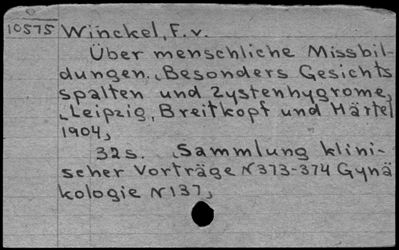 10575 Winckel, F. v.
Über menschliche Missbil-
dungen. Besonders Gesichts
spalten und Zystenhygrome,
Leipzig, Breitkopf und Härtel
1904,
32s. Sammlung klini-
scher Vorträge N 373-374 Gynä
kologie N 137,